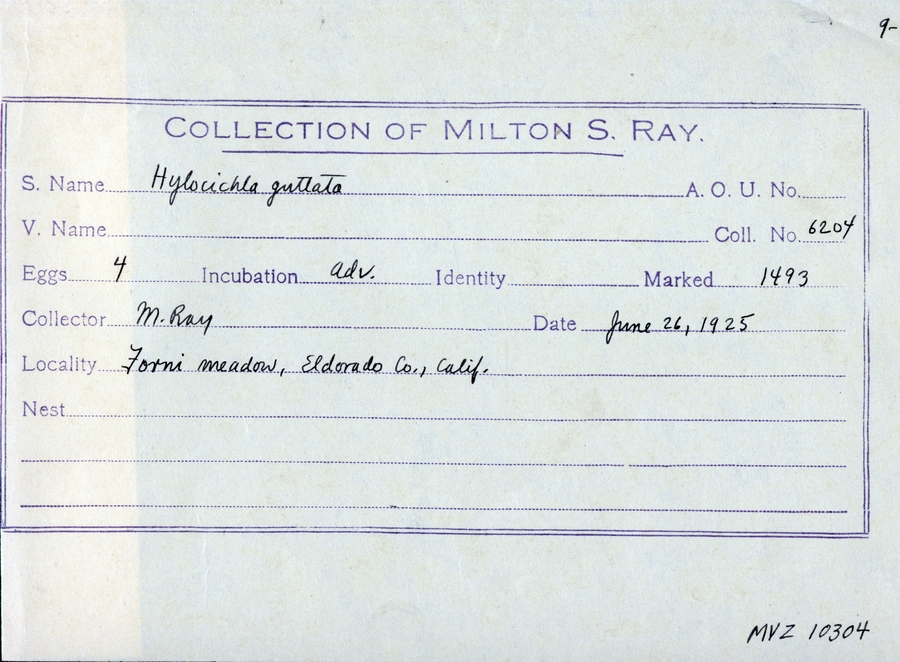 9-
COLLECTION OF MILTON S. RAY.
S. Name Hylocichla guttata A. O. U. No.
V. Name Coll. No. 6204
Eggs 4 Incubation adv. Identity Marked 1493
Collector M. Ray Date June 26, 1925
Locality Forni meadow, Eldorado Co., Calif.
Nest
MVZ 10304